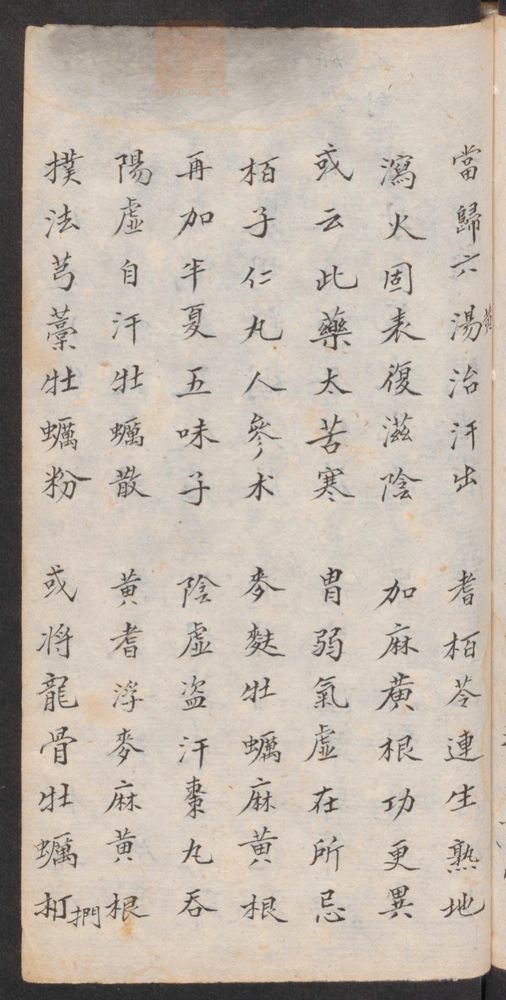 當歸六黃湯治汗出 耆栢芩連生熟地
瀉火固表復滋陰 加麻黃根功更異
或云此藥太苦寒 胃弱氣虛在所忌
栢子仁丸人參术 麥麩牡蠣麻黃根
再加半夏五味子 陰虛盜汗棗丸吞
陽虛自汗牡蠣散 黃耆浮麥麻黃根
撲法芎藁牡蠣粉 或將龍骨牡蠣捫